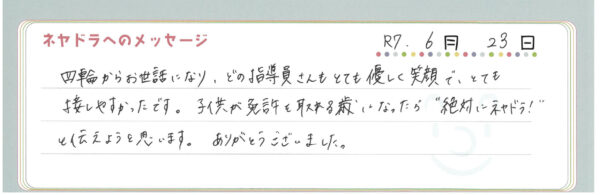 ネヤドラへのメッセージ
R7. 6月 23日
四輪からお世話になり、どの指導員さんもとても優しく笑顔で、とても
接しやすかったです。子供が免許を取れる歳になったら"絶対にネヤドラ!"
と伝えようと思います。ありがとうございました。